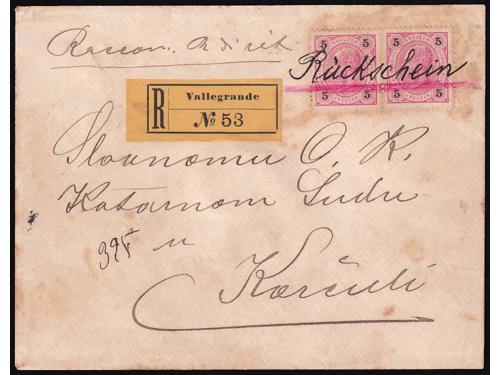 Rückschein
5 5 5 5
5 5 5 5
R Vallegrande
№ 53
Slavnomu C. K.
Kotarnom Sudu
395
u
Korčuli